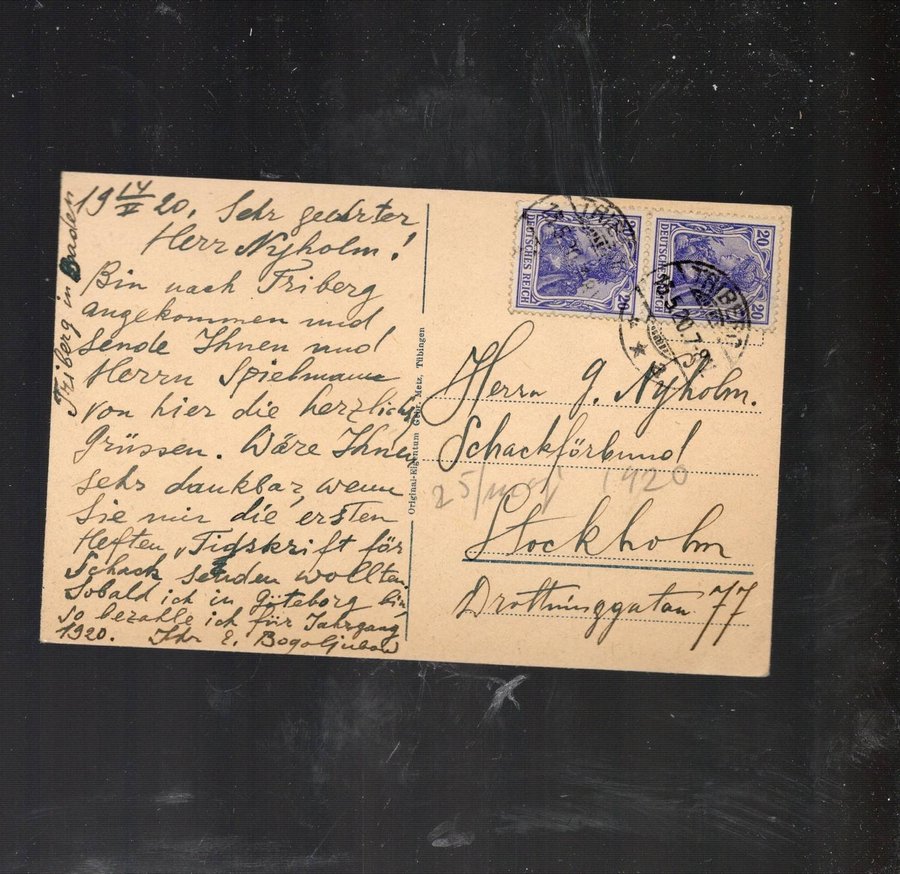 Triberg in Baden
19 14/V 20. Sehr geehrter
Herr Nyholm!
Bin nach Triberg
angekommen und
sende Ihnen und
Herrn Spielmann
von hier die herzlich
Grüssen. Wäre Ihnen
sehr dankbar, wenn
Sie mir die ersten
Heften „Tidskrift för
Schack senden wollten
Sobald ich in Göteborg bin
so bezahle ich für Jahrgang
1920. Ihr E. Bogoljubow
Original-Eigentum Gebr. Metz, Tübingen
DEUTSCHES REICH
20
DEUTSCHES REICH
20 20
TRIBERG
15.5.20.7-8
Herrn G. Nyholm.
Schackförbund
25/maj 1920
Stockholm
Drottninggatan 77